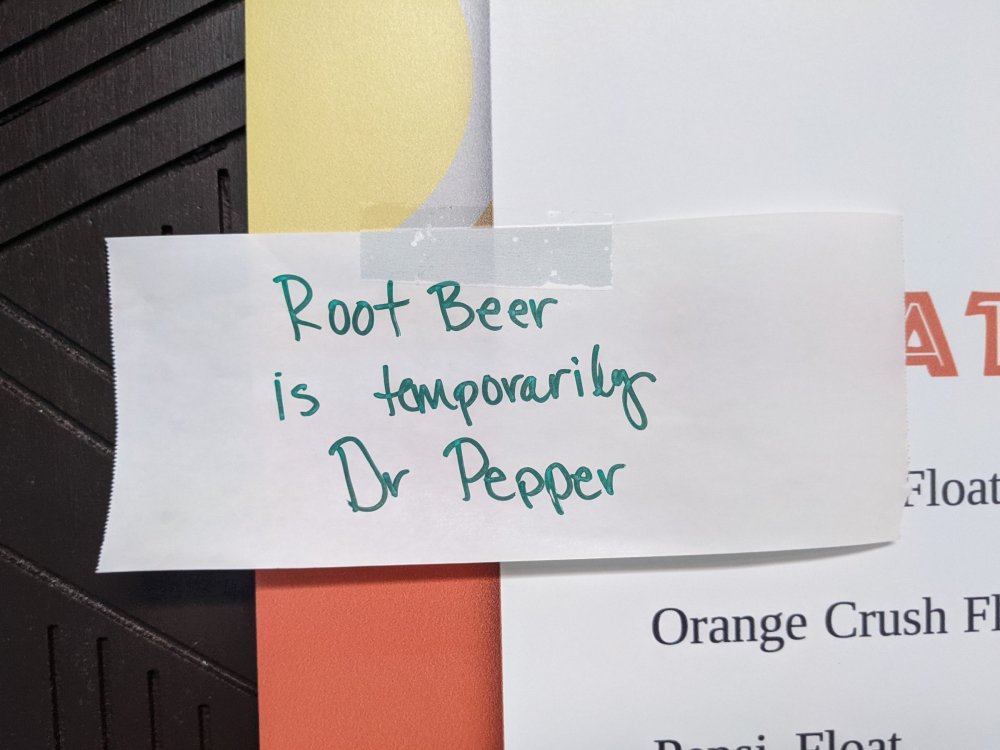 Root Beer
is temporarily
Dr Pepper
Float
Orange Crush
Float